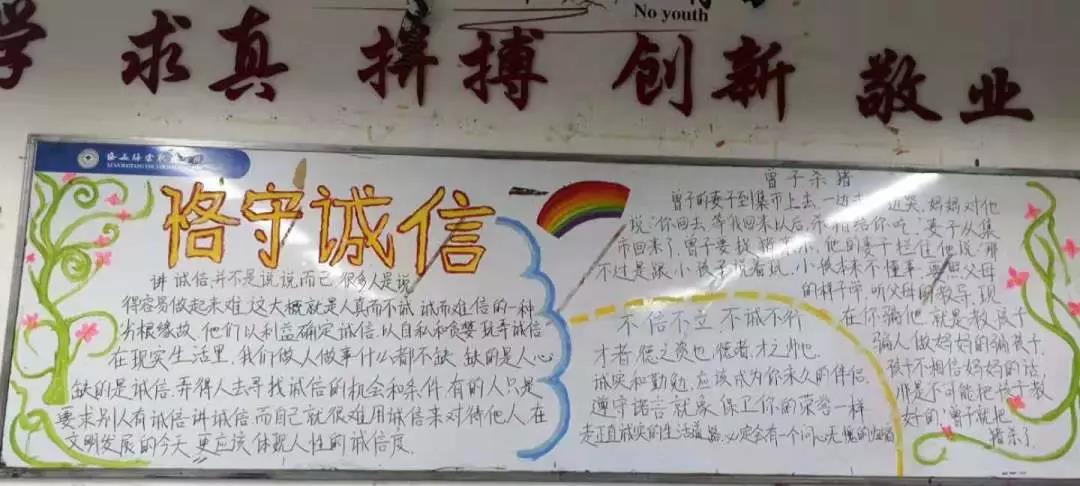 No youth
学 求真 拼搏 创新 敬业
恪守诚信
讲诚信,并不是说说而已,很多人是说
得容易做起来难,这大概就是人真而不诚,诚而难信的一种
劣根缘故,他们以利益确定诚信,以自私和贪婪玩弄诚信
在现实生活里,我们做人做事什么都不缺,缺的是人心
缺的是诚信,弄得人去寻找诚信的机会和条件,有的人只是
要求别人有诚信,讲诚信,而自己就很难用诚信来对待他人,在
文明发展的今天,更应该体现人性的诚信度.
不信不立 不诚不行
才者,德之资也,德者,才之帅也.
诚实和勤勉,应该成为你永久的伴侣,
遵守诺言就象保卫你的荣誉一样
走正直诚实的生活道路,必定会有一个问心无愧的归宿
曾子杀猪
曾子的妻子到集市上去,一边走一边哭,妈妈对他
说:你回去,等我回来以后,杀猪给你吃,妻子从集
市回来了,曾子要找猪,他的妻子拦住他说:那
不过是跟小孩子说着玩,小孩本来不懂事,要照父母
的样子学,听父母的教导,现
在你骗他,就是教孩子
骗人,做妈妈的骗孩子,
孩子不相信妈妈的话,
那是不可能把孩子教
好的,曾子就把
猪杀了